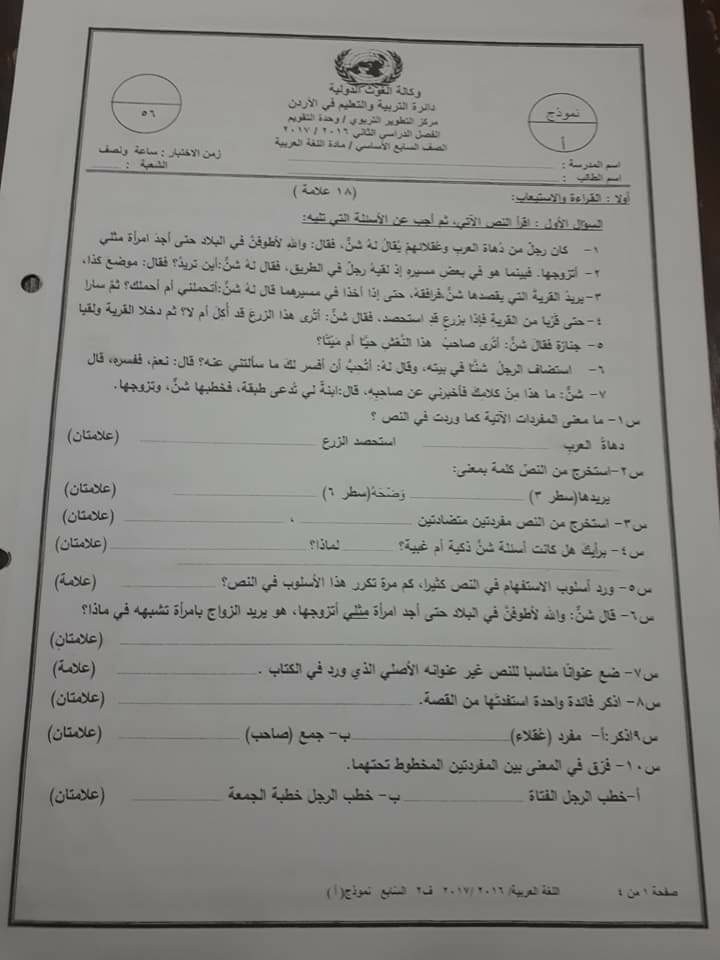 وكالة الغوث الدولية
دائرة التربية والتعليم في الأردن
مركز التطوير التربوي / وحدة التقويم
الفصل الدراسي الثاني ٢٠١٦ / ٢٠١٧
الصف السابع الأساسي / مادة اللغة العربية
نموذج
أ
٥٦
اسم المدرسة :
زمن الاختبار : ساعة ونصف
اسم الطالب :
الشعبة :
أولا : القراءة والاستيعاب: (١٨ علامة )
السؤال الأول : اقرأ النص الآتي، ثم أجب عن الأسئلة التي تليه:
١- كان رجل من دُهاة العرب وعُقلائهم يُقالُ لهُ شنٌّ، فقال: والله لأطوفنَّ في البلاد حتى أجد امرأة مثلي
٢- أتزوجها. فبينما هو في بعض مسيره إذ لقيهُ رجلٌ في الطريق، فقال لهُ شنٌّ:أين تريدُ؟ فقال: موضع كذا،
٣-يريدُ القرية التي يقصدها شنٌّ،فرافقهُ، حتى إذا أخذا في مسيرهما قال لهُ شنٌّ:أتحملني أم أحملك؟ ثمَّ سارا
٤-حتى قرُبا من القرية فإذا بزرعٍ قدِ استحصد، فقال شنٌّ: أترى هذا الزرع قد أُكلَ أم لا؟ ثم دخلا القرية ولقيا
٥- جنازة فقالَ شنٌّ: أترى صاحبُ هذا النَّعْشِ حيًّا أم ميّتًا؟
٦- استضاف الرجلُ شنًّا في بيته، وقال له: أتُحبُّ أن أفسر لكَ ما سألتني عنه؟ قال: نعمْ، ففسره، قال
٧- شنٌّ: ما هذا مِنْ كلامكَ فأخبرني عن صاحبِه، قال:ابنةٌ لي تُدعى طبقة، فخطبها شنٌّ، وتزوجها.
س١- ما معنى المفردات الآتية كما وردت في النص ؟
دهاةُ العربِ استحصد الزرع (علامتان)
س٢-استخرج من النصّ كلمة بمعنى:
يريدها(سطر ٣) وَضّحَهُ(سطر ٦) (علامتان)
س٣- استخرج من النص مفردتين متضادتين ، (علامتان)
س٤- برأيكَ هل كانت أسئلة شنٌّ ذكية أم غبية؟ لماذا؟ (علامتان)
س٥- ورد أسلوب الاستفهام في النص كثيرا، كم مرة تكرر هذا الأسلوب في النص؟ (علامة)
س٦- قال شنٌّ: والله لأطوفنَّ في البلاد حتى أجد امرأة مثلي أتزوجها، هو يريد الزواج بامرأة تشبهه في ماذا؟
(علامتانِ)
س٧- ضع عنوانًا مناسبا للنص غير عنوانه الأصلي الذي ورد في الكتاب . (علامة)
س٨- اذكر فائدة واحدة استفدتها من القصة. (علامتان)
س٩اذكر:أ- مفرد (عُقلاء) ب- جمع (صاحب) (علامتان)
س١٠- فرّق في المعنى بين المفردتين المخطوط تحتهما.
أ-خطب الرجل الفتاة ب- خطب الرجل خطبة الجمعة (علامتان)
صفحة ١ من ٤
اللغة العربية/ ٢٠١٦ /٢٠١٧ ف٢ السابع نموذج(أ )